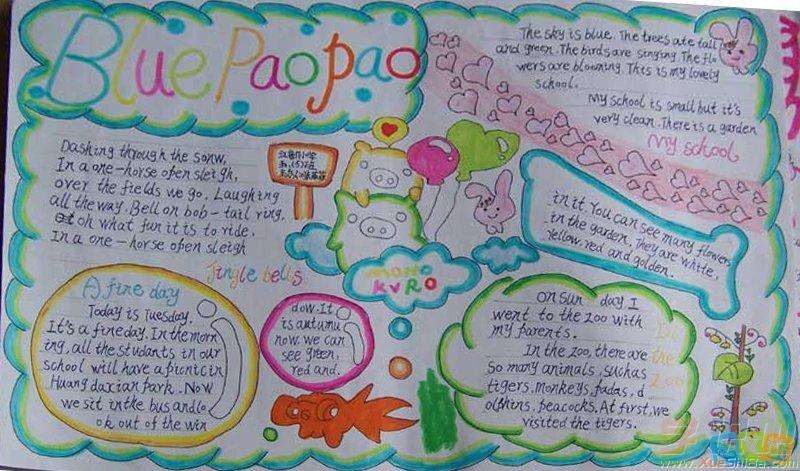 Blue Paopao
The sky is blue. The trees are tall
and green. The birds are singing. The flo
wers are blowning. This is my lovely
school.
My school is small but it's
very clean. There is a garden
My school
in it You can see many flowers
in the garden. They are white,
Yellow red and golden.
Dashing through the sonw,
In a one-horse open sleigh,
over the fields we go, Laughing
all the way. Bell on bob-tail ring,
oh what fun it is to ride,
In a one-horse open sleigh
Jingle bells.
mono
kvro
A fine day
Today is Tuesday.
It's a fineday. In the morn
ing, all the students in our
school will have a picnic in
Huang daxian park. Now
we sit in the bus and lo
ok out of the win
dow. It
is autumu
now we can
see green,
red and.
on Sun day I
went to the zoo with
my parents.
In the zoo, there are
So many animals, suchas
tigers, monkeys, Padas, d
olthins, peacocks. At first, we
visited the tigers.
the
Zoo
www.xueshiba.com